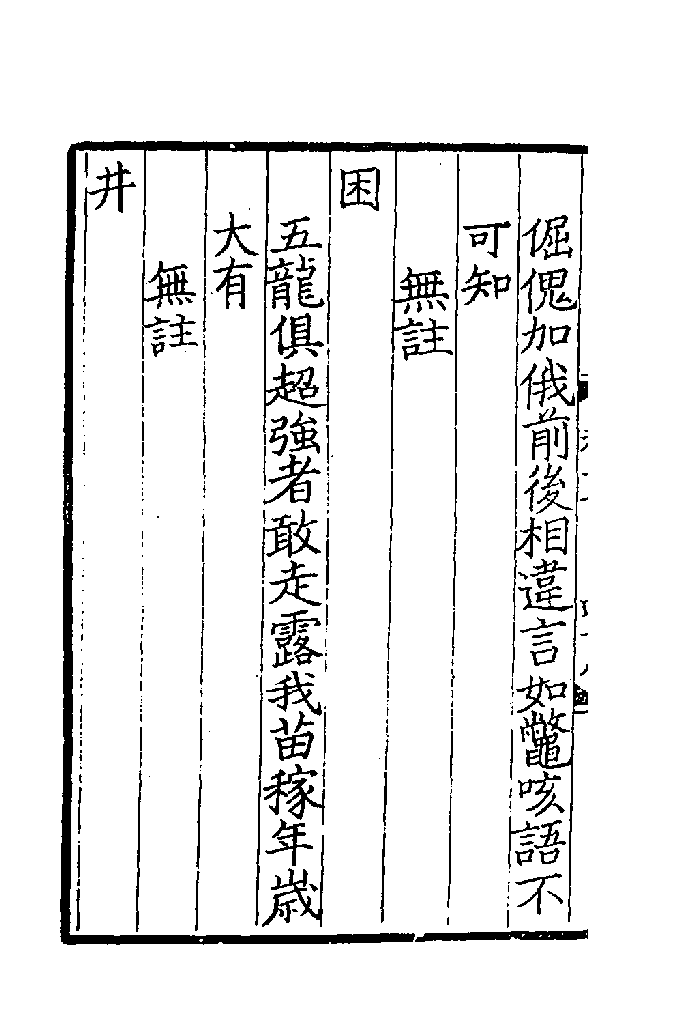 倔傀加俄前後相違言如鼈咳語不
可知
無註
困
五龍俱超強者敢走露我苗稼年歲
大有
無註
井